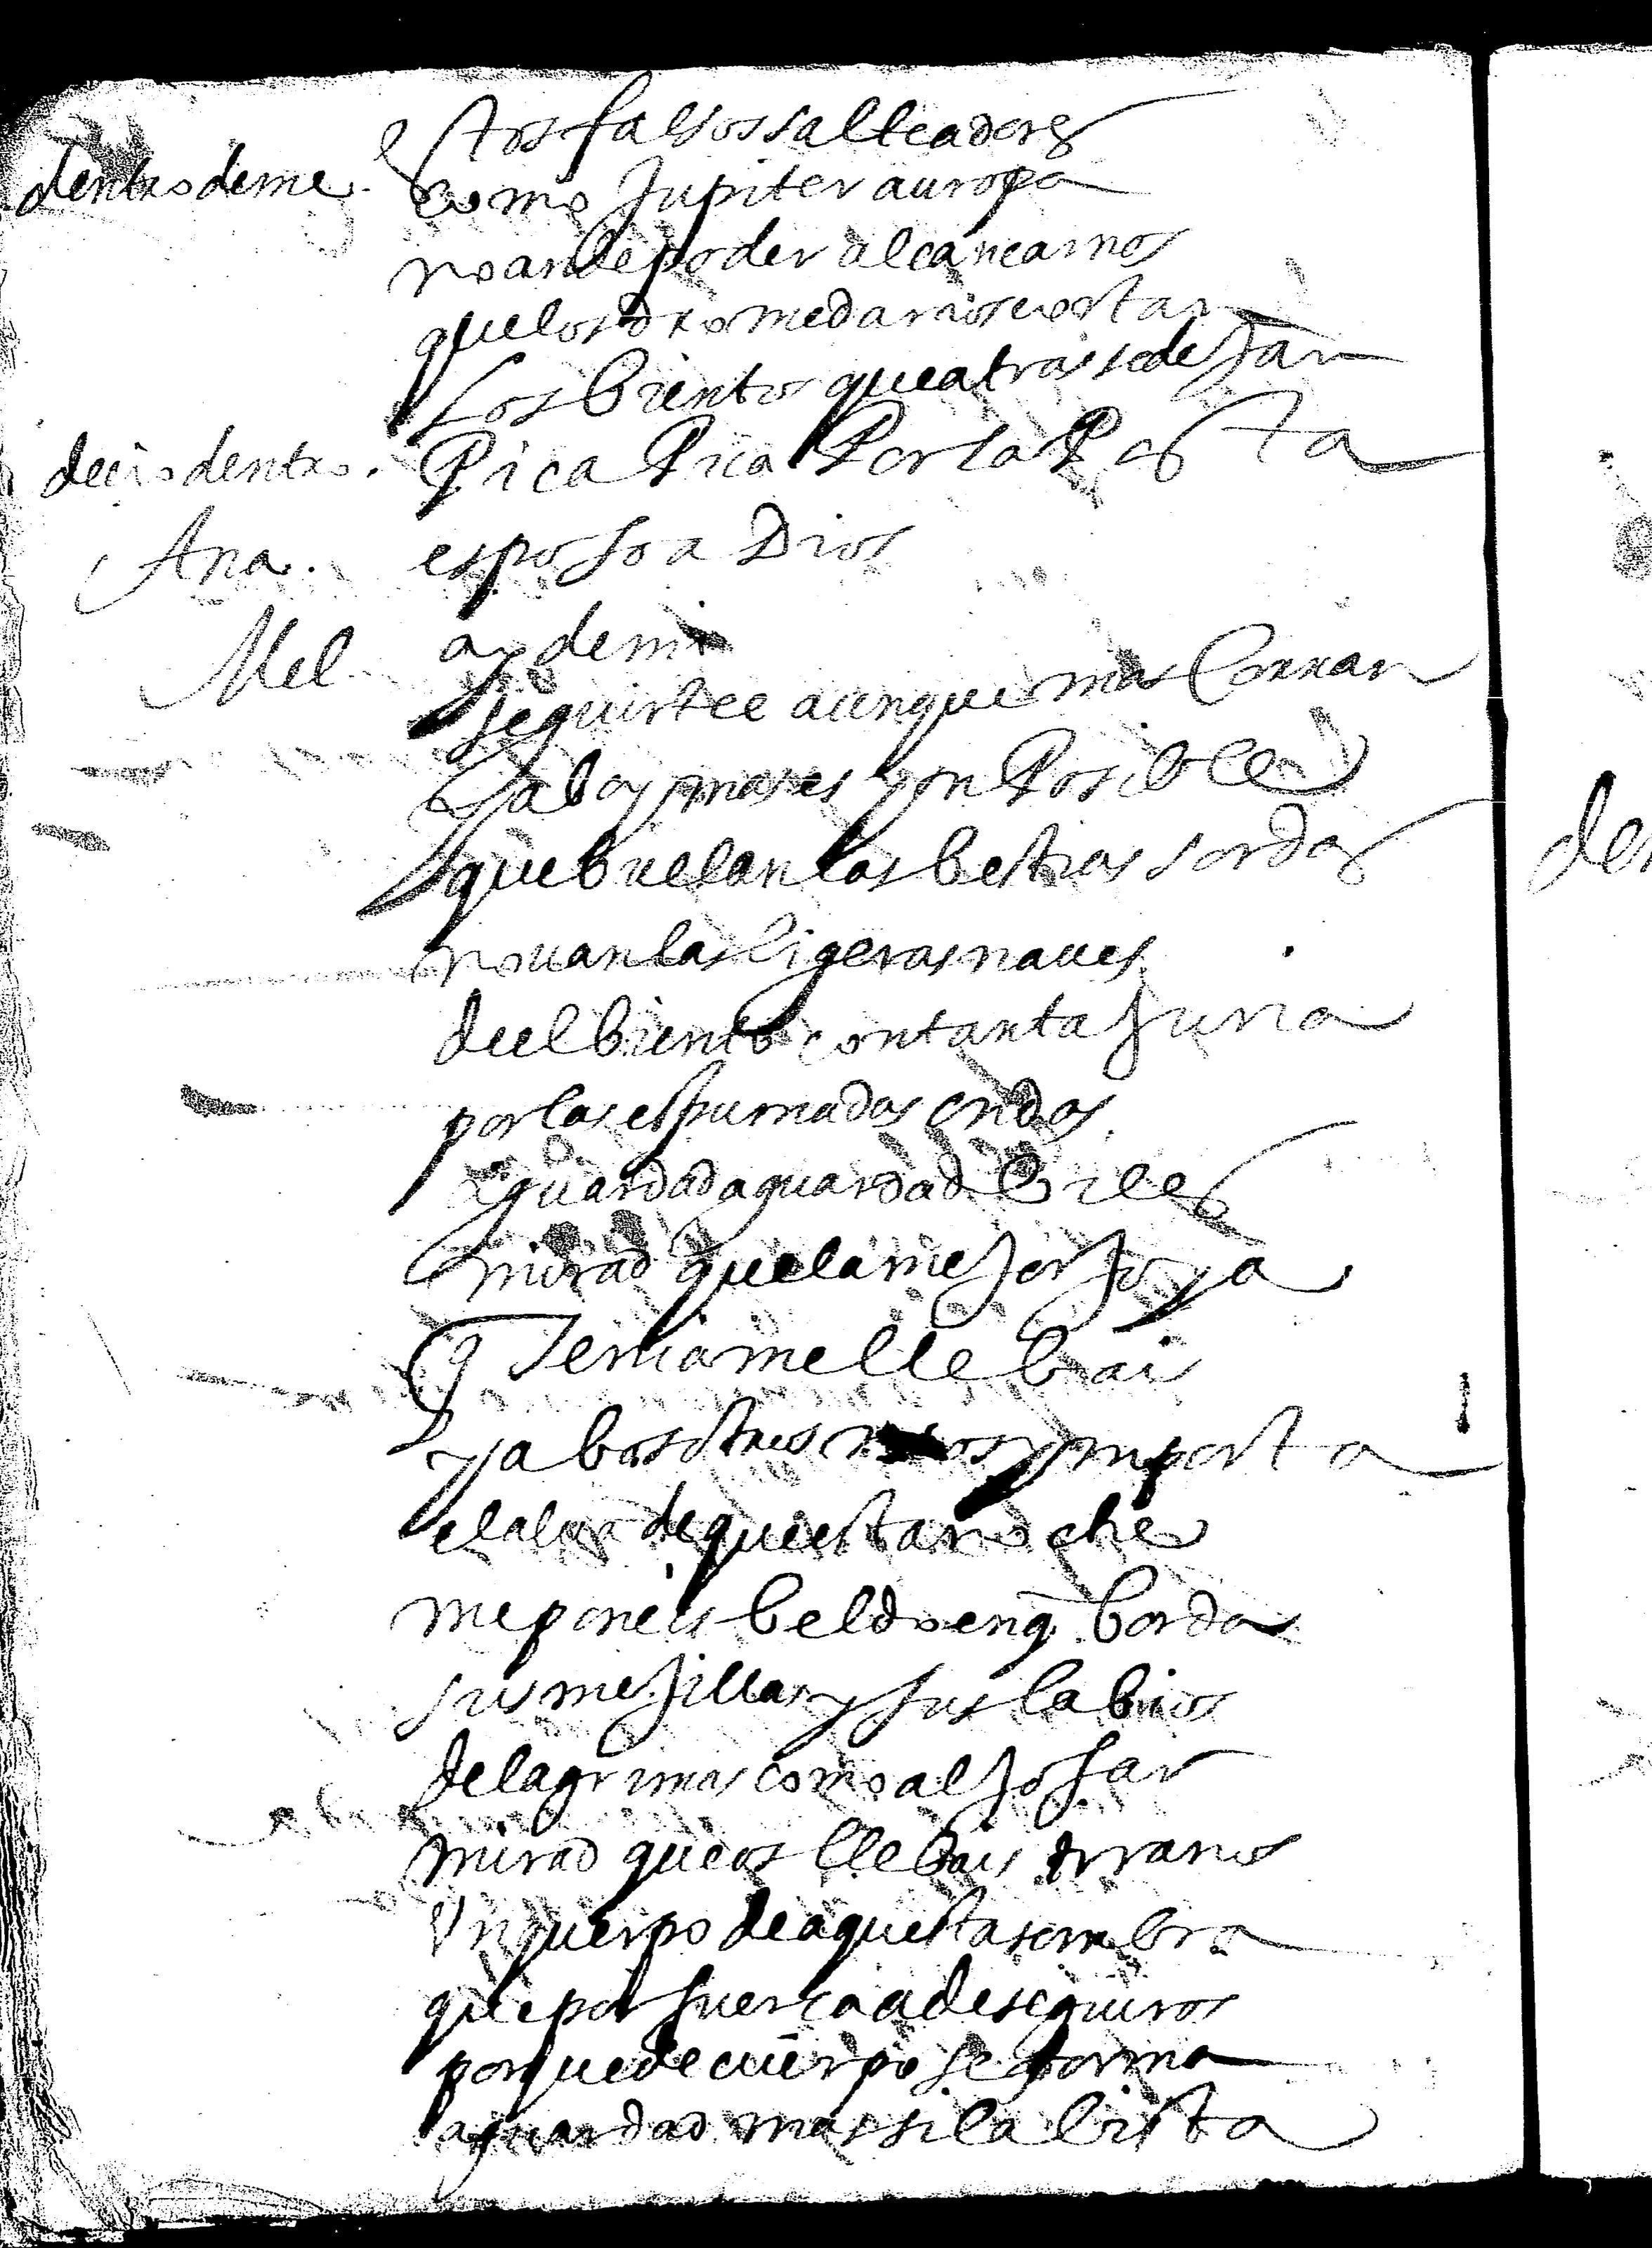 estos falsos salteadores
dentro deme. como Jupiter a uropa
no an de poder alcancarnos
que los dromedarios cortan
los bientos que atras se dejan
decio dentro. Pica Pica Por la Posta
Ana. esposo a Dios
Mel ay de mi
seguirtee aunque mas Corran
mas es ynPosible
que buelan las bestias sordas
no uan las ligeras naues
de el biento con tanta furia
por las espumadas ondas
aguardad aguardad biles
mirad que la mejor Joya
q Tenia me llebais
y a bosotros no os ymporta
el alua de que esta noche
me poneis beldo en q borda
sus mejillas y sus labios
de lagrimas como aljofar
mirad que os llebais tiranos
Un querpo de aquesta sombra
que por fuerca a de seguiros
porque de cuerpo se forma
aguardad mas si la bista